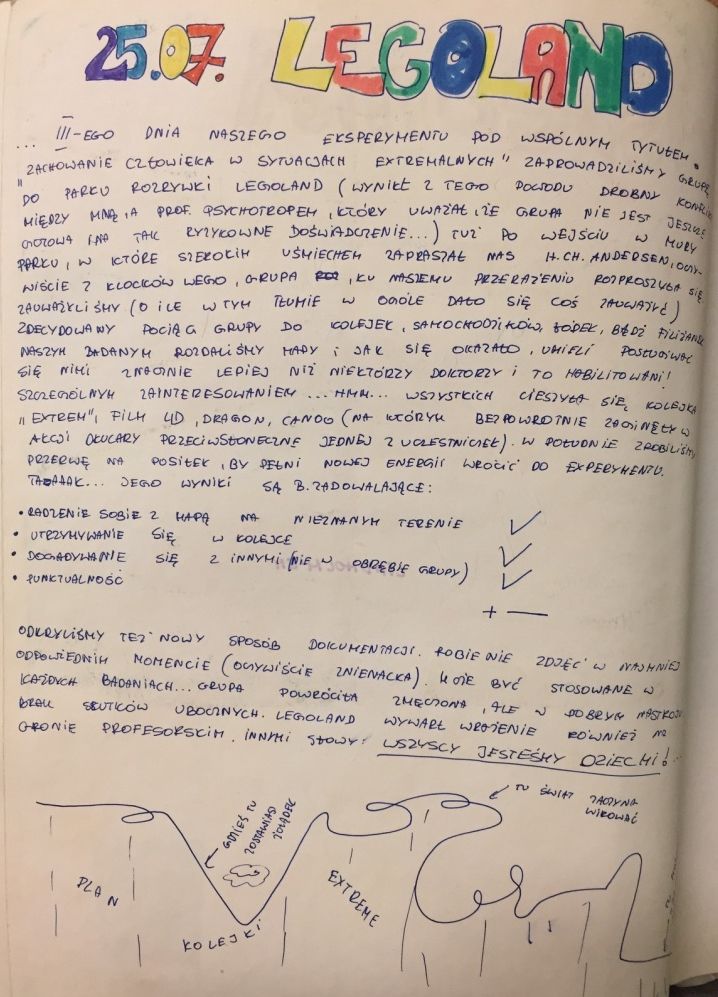 25.07. LEGOLAND
... III-EGO DNIA NASZEGO EKSPERYMENTU POD WSPÓLNYM TYTUŁEM
"ZACHOWANIE CZŁOWIEKA W SYTUACJACH EXTREMALNYCH" ZAPROWADZILIŚMY GRUPĘ
DO PARKU ROZRYWKI LEGOLAND (WYNIKŁ Z TEGO POWODU DROBNY KONFLIKT
MIĘDZY MNĄ, A PROF. PSYCHOTROPEM, KTÓRY UWAŻAŁ, ŻE GRUPA NIE JEST JESZCZE
GOTOWA NA TAK RYZYKOWNE DOŚWIADCZENIE...) TUŻ PO WEJŚCIU W MURY
PARKU, W KTÓRE SZEROKIM UŚMIECHEM ZAPRASZAŁ NAS H.CH. ANDERSEN, OCZY-
WIŚCIE Z KLOCKÓW LEGO, GRUPA, KU NASZEMU PRZERAŻENIU ROZPROSZYŁA SIĘ.
ZAUWAŻYLIŚMY (O ILE W TYM TŁUMIE W OGÓLE DAŁO SIĘ COŚ ZAUWAŻYĆ)
ZDECYDOWANY POCIĄG GRUPY DO KOLEJEK, SAMOCHODZIKÓW, ŁÓDEK, BĄDŹ FILIŻANEK
NASZYM BADANYM ROZDALIŚMY MAPY I JAK SIĘ OKAZAŁO, UMIELI POSŁUGIWAĆ
SIĘ NIMI ZNACZNIE LEPIEJ NIŻ NIEKTÓRZY DOKTORZY I TO HABILITOWANI!
SZCZEGÓLNYM ZAINTERESOWANIEM... HMM... WSZYSTKICH CIESZYŁA SIĘ KOLEJKA
"EXTREM", FILM 4D, DRAGON, CANOO (NA KTÓRYM BEZPOWROTNIE ZAGINĘŁY W
AKCJI OKULARY PRZECIWSŁONECZNE JEDNEJ Z UCZESTNICZEK). W POŁUDNIE ZROBILIŚMY
PRZERWĘ NA POSIŁEK, BY PEŁNI NOWEJ ENERGII WRÓCIĆ DO EXPERYMENTU.
TAAAAK... JEGO WYNIKI SĄ B. ZADOWALAJĄCE:
• RADZENIE SOBIE Z MAPĄ NA NIEZNANYM TERENIE ✓
• UTRZYMYWANIE SIĘ W KOLEJCE ✓
• DOGADYWANIE SIĘ Z INNYMI (NIE W OBRĘBIE GRUPY) ✓
• PUNKTUALNOŚĆ + —
ODKRYLIŚMY TEŻ NOWY SPOSÓB DOKUMENTACJI. ROBIENIE ZDJĘĆ W NAJMNIEJ
ODPOWIEDNIM MOMENCIE (OCZYWIŚCIE ZNIENACKA). MOŻE BYĆ STOSOWANE W
KAŻDYCH BADANIACH... GRUPA POWRÓCIŁA ZMĘCZONA, ALE W DOBRYM NASTROJU
BRAK SKUTKÓW UBOCZNYCH. LEGOLAND WYWARŁ WRAŻENIE RÓWNIEŻ NA
GRONIE PROFESORSKIM. INNYMI SŁOWY: WSZYSCY JESTEŚMY DZIEĆMI!
TU ŚWIAT ZACZYNA
WIROWAĆ
GDZIEŚ TU
ZOSTAWIASZ
ŻOŁĄDEK
PLAN
KOLEJKI
EXTREME